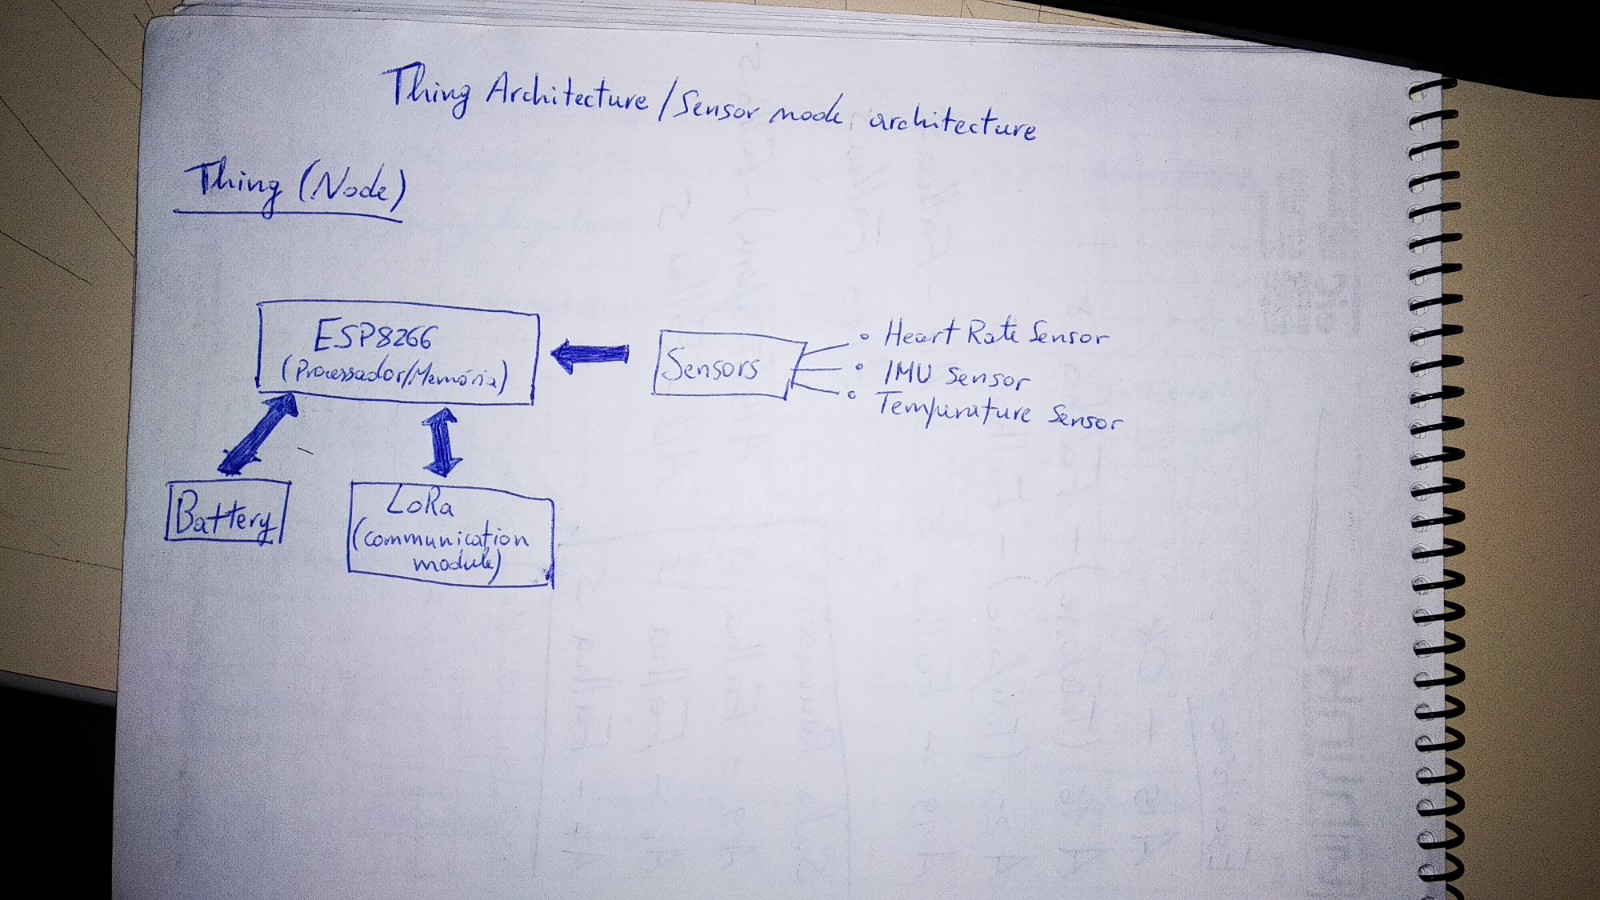 Thing Architecture / Sensor node architecture
Thing (Node)
ESP8266
(Processador/Memória)
Sensors
• Heart Rate Sensor
• IMU Sensor
• Temperature Sensor
Battery
LoRa
(communication
module)